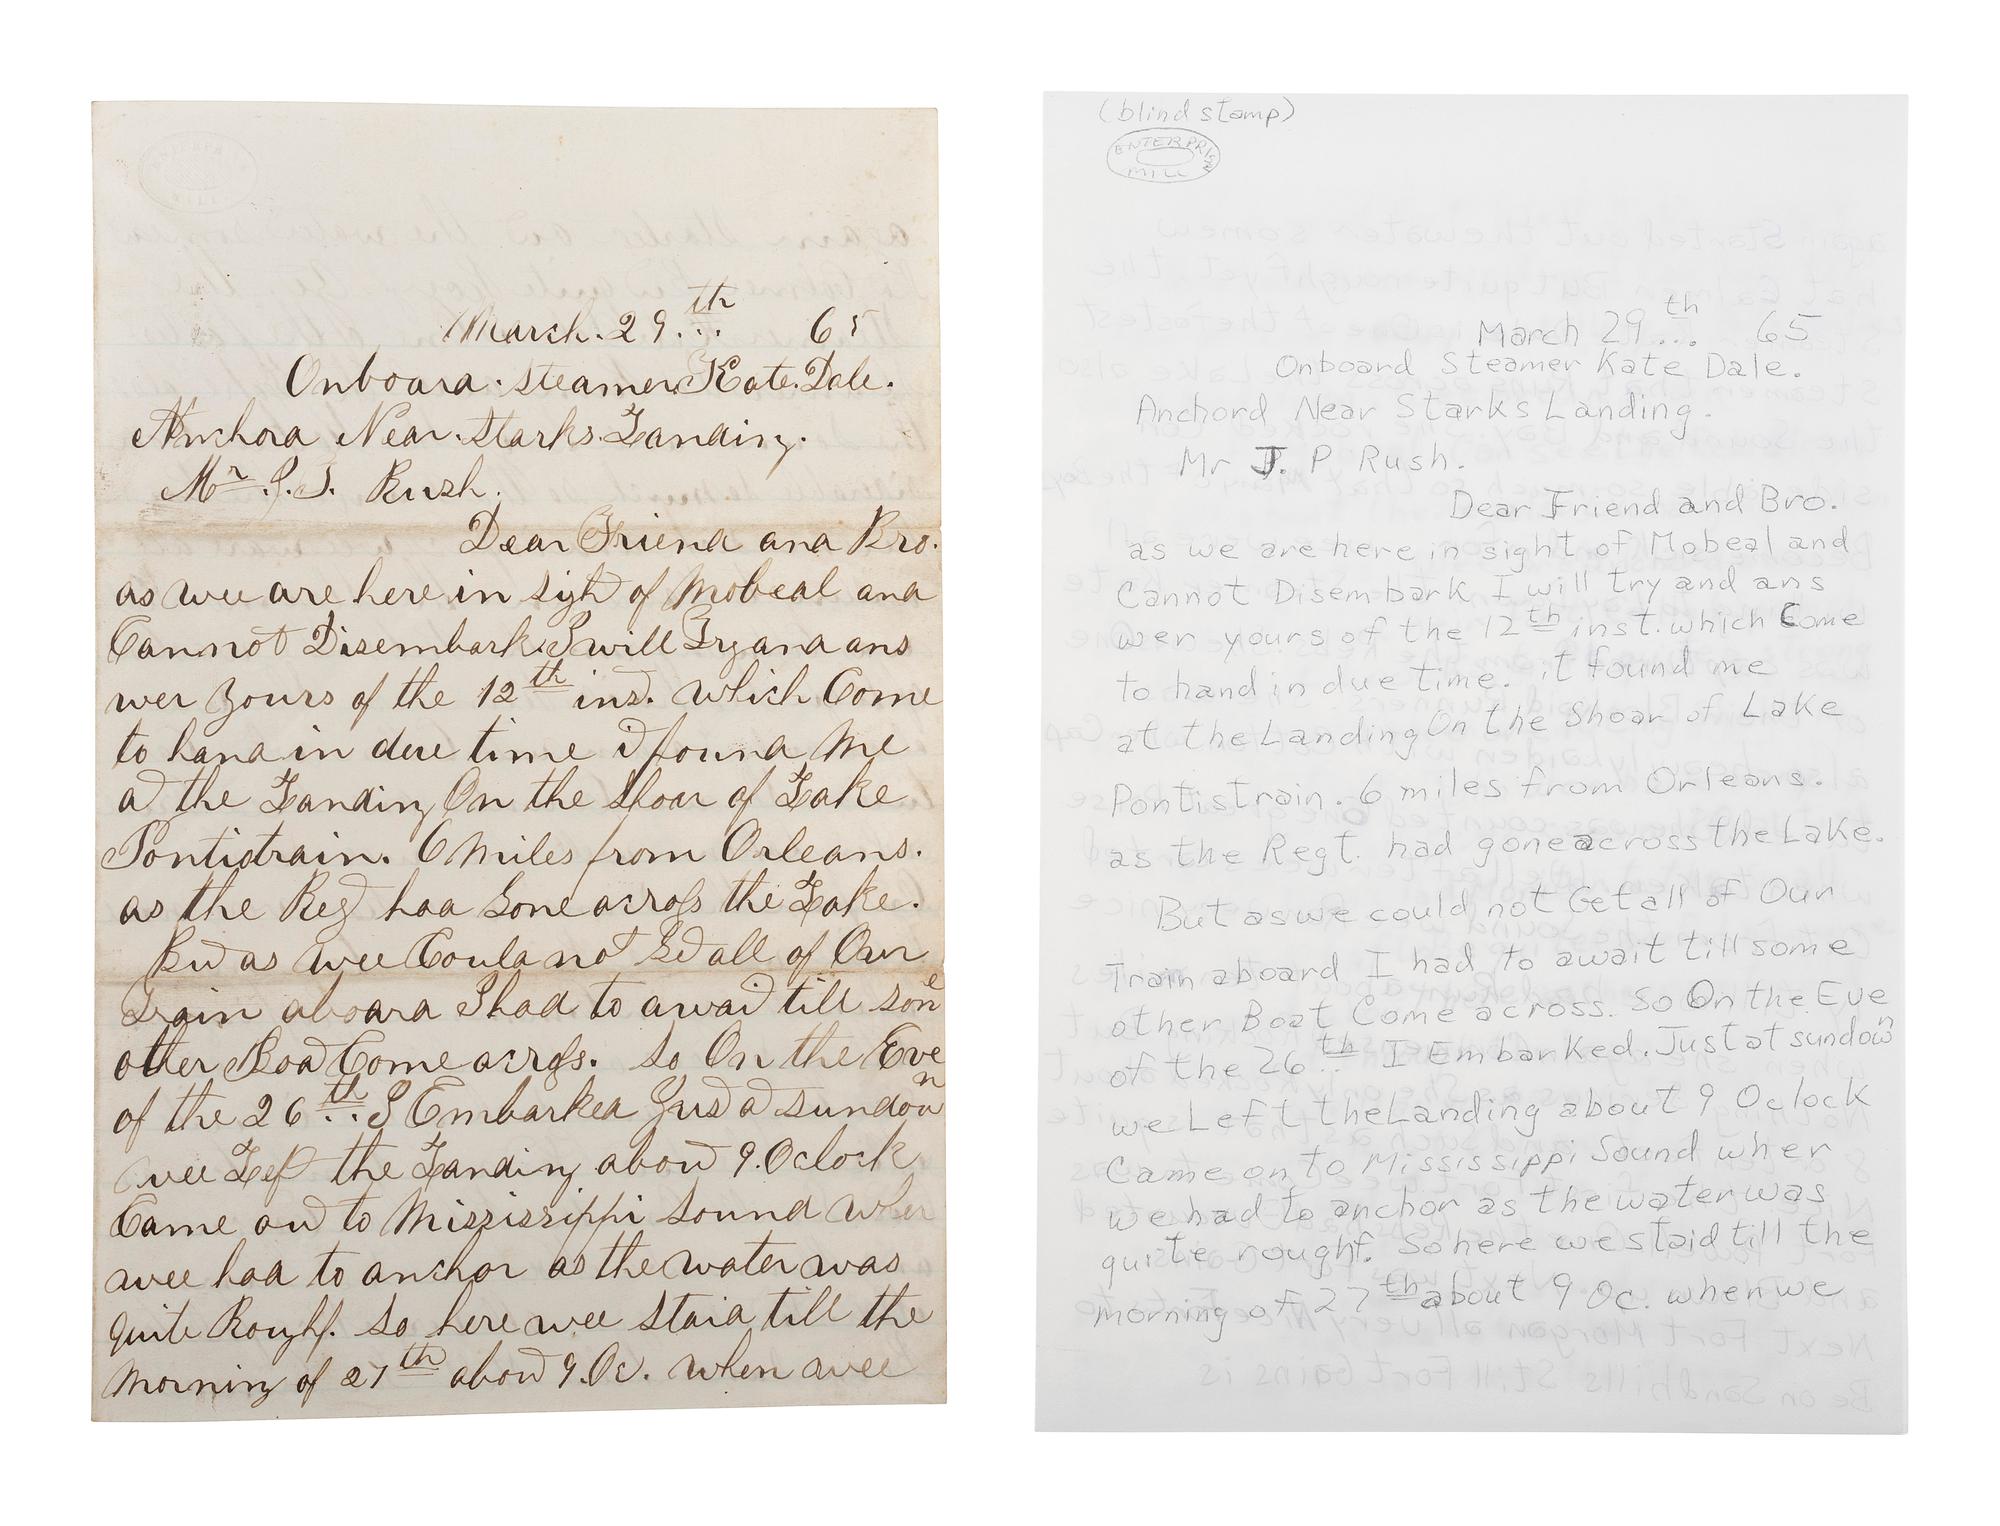 March. 29.th 65
Onboard. steamer Kate. Dale.
Anchord Near. Starks. Landing.
Mr. J. P. Rush.
Dear Friend and Bro.
as wee are here in sight of Mobeal and
Cannot Disembark. I will Try and ans
wer yours of the 12th inst. which Come
to hand in due time it found Me
at the Landing On the Shoar of Lake
Pontistrain. 6 Miles from Orleans.
as the Regt had Gone across the Lake.
But as wee Could not Get all of Our
Train aboard I had to await till some
other Boat Come across. So On the Eve
of the 26th I Embarked Just at sundown
wee Left the Landing about 9. Oclock
Came out to Mississippi Sound wher
wee had to anchor as the water was
quite Roughf. So here wee Staid till the
Morning of 27th about 9. Oc. when wee
(blind stamp)
ENTERPRISE
MILL
March 29th... 65
Onboard Steamer Kate Dale.
Anchord Near Starks Landing.
Mr J. P Rush.
Dear Friend and Bro.
as we are here in sight of Mobeal and
Cannot Disembark I will try and ans
wer yours of the 12th inst. which Come
to hand in due time. it found me
at the Landing On the Shoar of Lake
Pontistrain. 6 miles from Orleans.
as the Regt. had gone across the Lake.
But as we could not Get all of Our
Train aboard I had to await till some
other Boat Come across. So On the Eve
of the 26th I Embarked. Just at sundown
we Left the Landing about 9 Oclock
Came on to Mississippi Sound wher
we had to anchor as the water was
quite roughf. So here we staid till the
morning of 27th about 9 Oc. when we